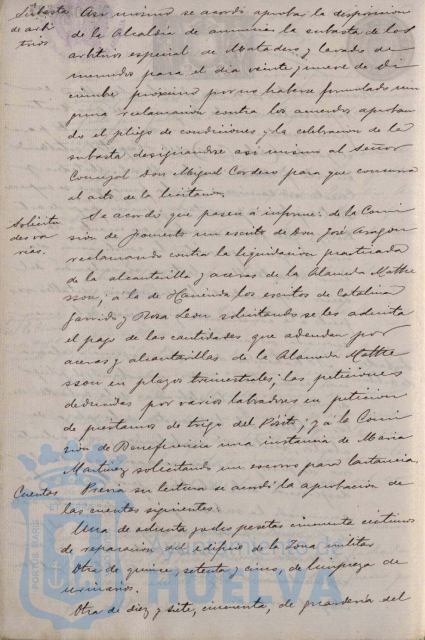 Subasta Así mismo se acordó aprobar la disposición
de arbi de la Alcaldía de anunciar la subasta de los
trios arbitrios especial de Matadero y lavado de
menudos para el día veinte y nueve de Di
ciembre próximo por no haberse formulado nin
guna reclamación contra los acuerdos aproban
do el pliego de condiciones y la celebración de la
subasta designándose así mismo al Señor
Concejal Don Miguel Cordero para que concurra
al acto de la licitación.
Solicitu Se acordó que pasen á informe: de la Comi
des va sión de Fomento un escrito de Don José Aragón
rias. reclamando contra la liquidación practicada
de la alcantarilla y aceras de la Alameda Mathe
sson; á la de Hacienda los escritos de Catalina
Garrido y Rosa León solicitando se les admita
el pago de las cantidades que adeudan por
aceras y alcantarillas de la Alameda Mathe
sson en plazos trimestrales; las peticiones
deducidas por varios labradores en petición
de préstamos de trigo del Pósito; y á la Comi
sión de Beneficencia una instancia de María
Martínez solicitando un socorro para lactancia.
Cuentas Previa su lectura se acordó la aprobación de
las cuentas siguientes:
Una de ochenta y dos pesetas cincuenta céntimos
de reparación del edificio de la zona militar
Otra de quince, setenta y cinco, de limpieza de
urinarios.
Otra de diez y siete, cincuenta, de guardería del
PORTUS MARIS
Ayuntamiento de
HUELVA